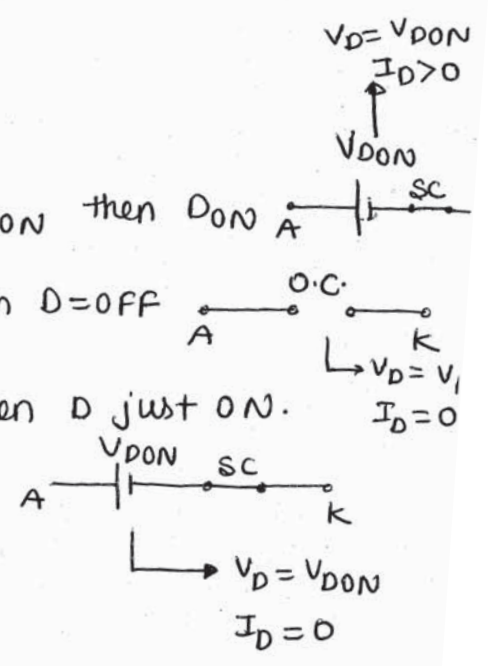 VD = VDON
ID > 0
VDON
ON then DON A SC
D = OFF O.C.
A K
VD = V
ID = 0
D just ON.
VDON SC
A K
VD = VDON
ID = 0